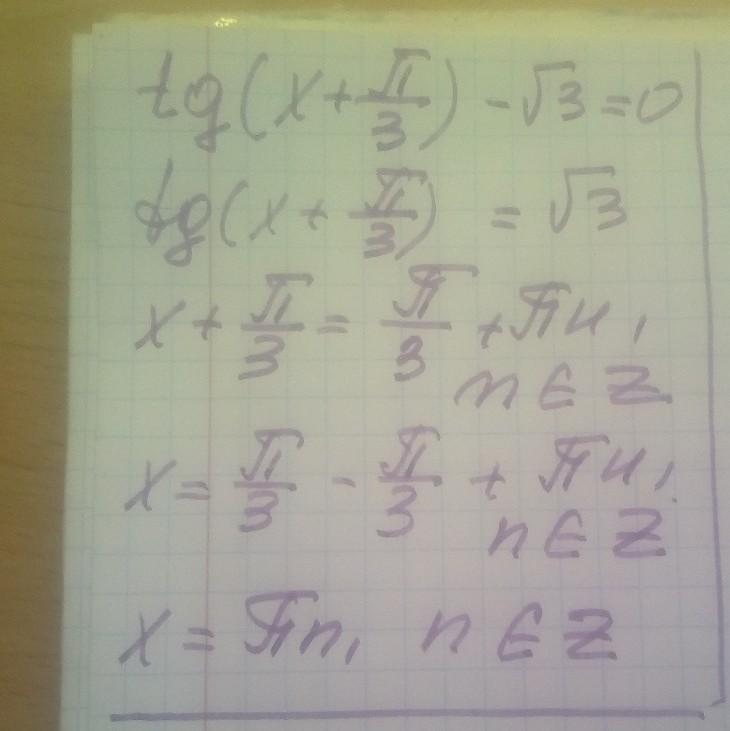 tg(x+π/3) - √3 = 0
tg(x+π/3) = √3
x+π/3 = π/3 + πn,
n ∈ Z
x = π/3 - π/3 + πn,
n ∈ Z
x = πn, n ∈ Z